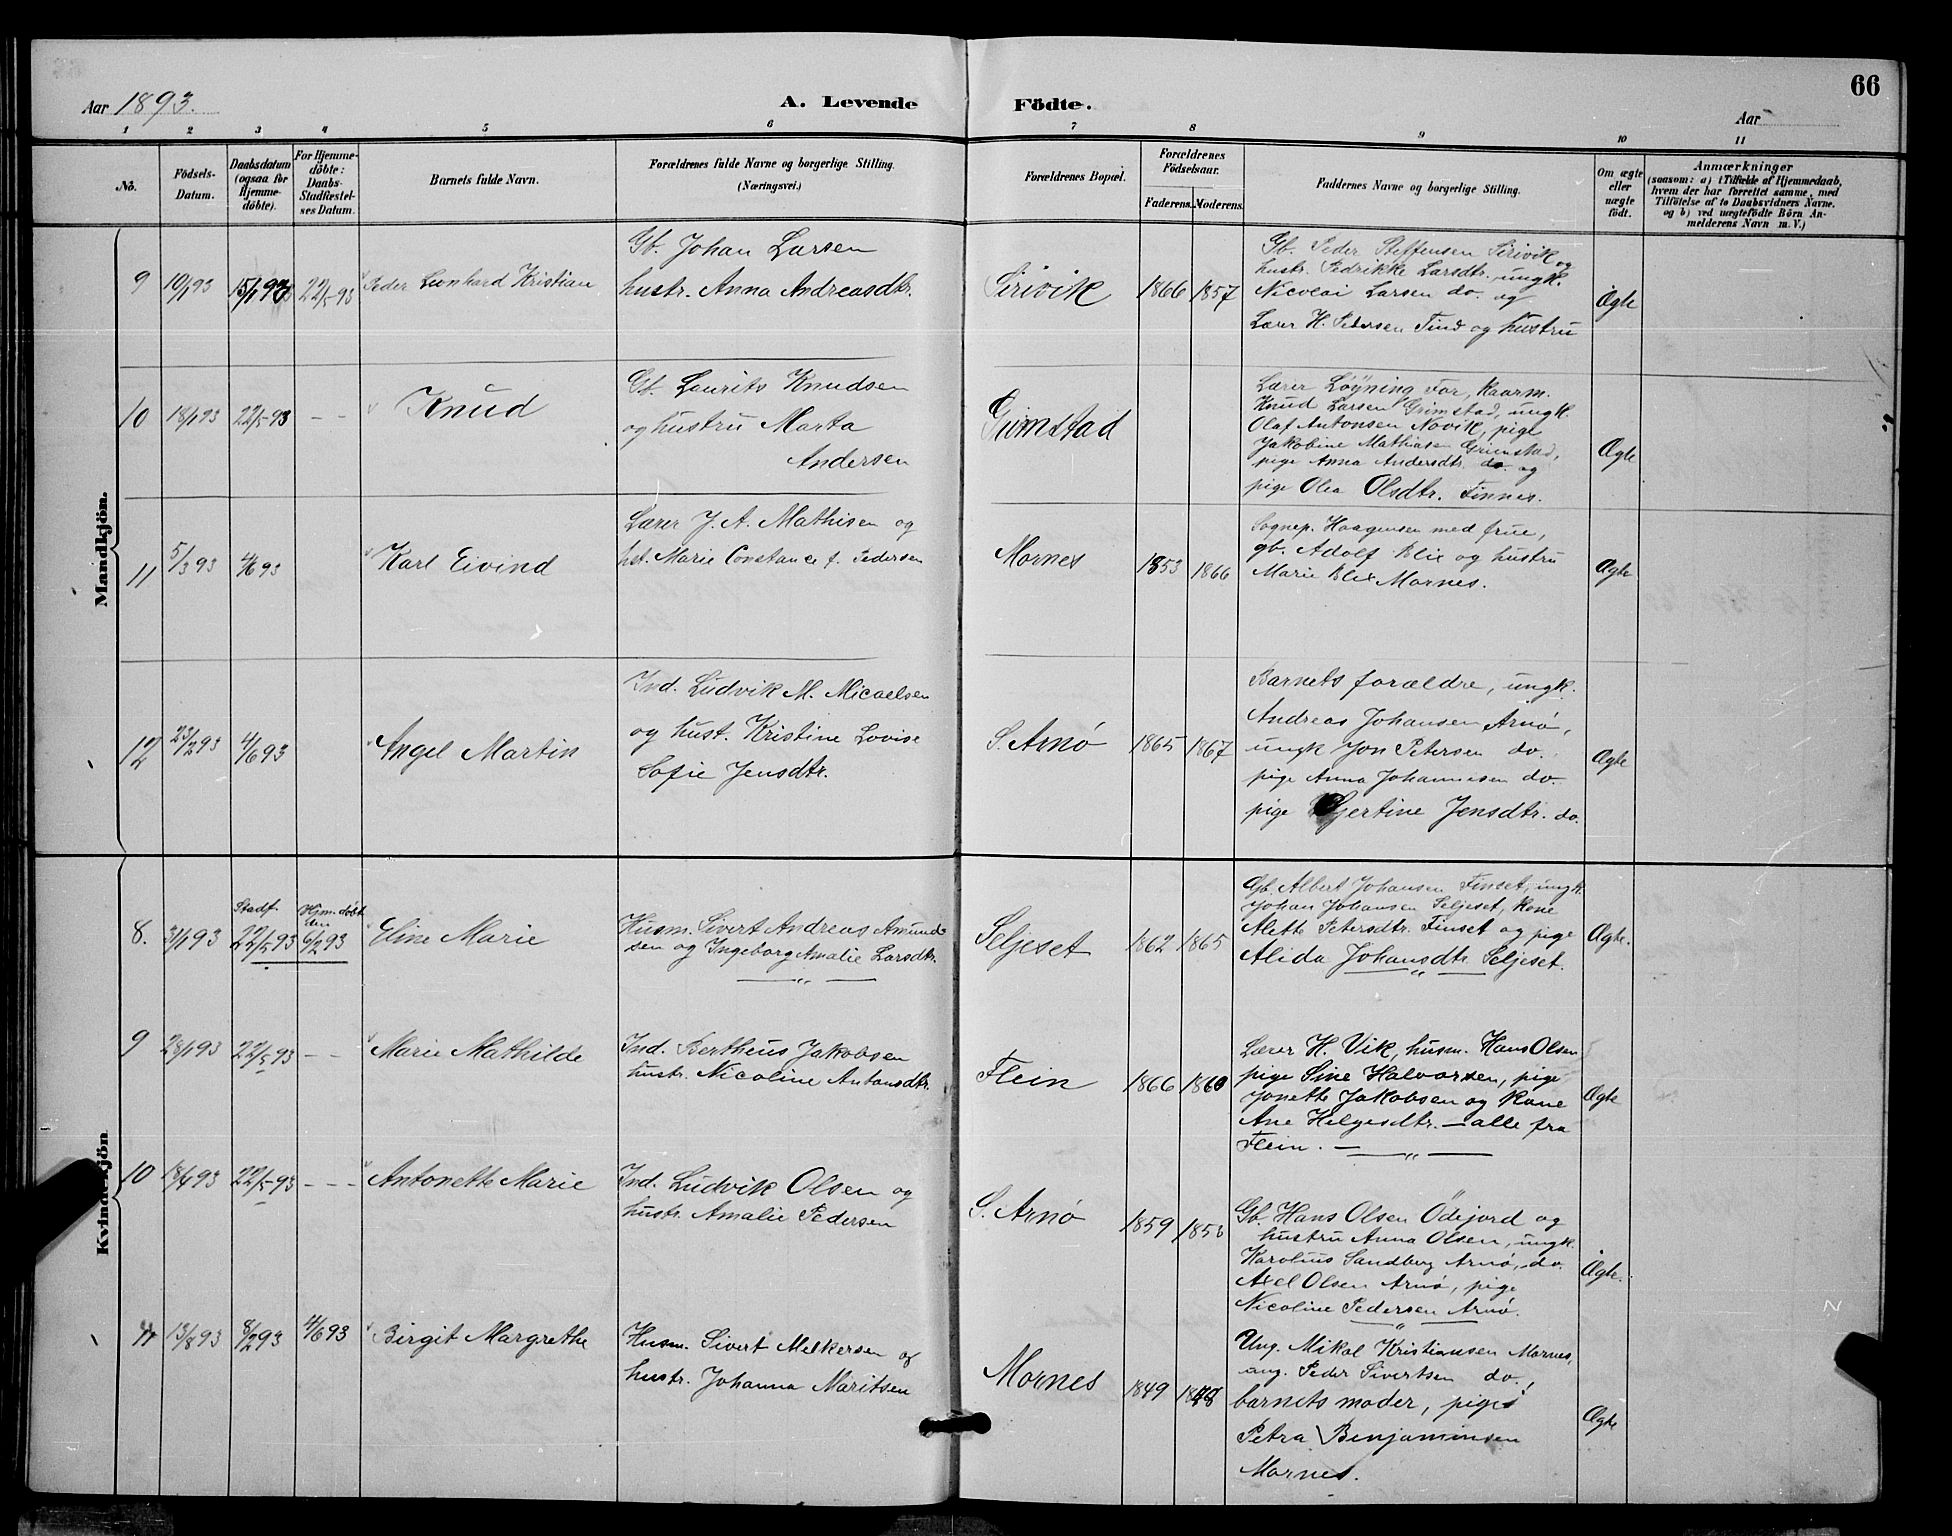 66
Aar 1893.
A. Levende Födte.
Aar
1 2 3 4 5 6 7 8 9 10 11
No.
Födsels-
Datum.
Daabsdatum
(ogsaa for
Hjemme-
döbte).
For Hjemme-
döbte:
Daabs-
Stadfæstel-
ses Datum.
Barnets fulde Navn.
Forældrenes fulde Navne og borgerlige Stilling.
(Næringsvei.)
Forældrenes Bopæl.
Forældrenes
Födselsaar.
Faderens. Moderens.
Faddernes Navne og borgerlige Stilling.
Om ægte
eller
uægte
født.
Anmærkninger
(saasom: a) i Tilfælde af Hjemmedaab,
hvem der har forrettet samme, med
Tilföielse af to Daabsvidners Navne.
og b) ved uægtefödte Börn An-
melderens Navn m. V.)
Mandkjön.
9 10/1 93 15/1 93 22/5 93 Peder Leonhard Kristian
Gb. Johan Larsen
hustr. Anna Andreasdtr.
Sirivik 1866 1857
Gb. Peder Steffensen Sirivik og
hustr. Pedrikke Larsdtr. ungk.
Nicolai Larsen do. og
Lærer H. Pedersen Tind og hustru
Ægte
10 18/1 93 22/5 93 - - Knud
Gb. Laurits Knudsen
og hustru Marta
Andersen
Grimstad
Lærer Löyning For, kaarm.
Knud Larsen Grimstad, ungk.
Olaf Antonsen Novik, pige
Jakobine Mathiasen Grimstad,
pige Anna Andersdtr. do. og
pige Olea Olsdtr. Finnes.
Ægte
11 5/3 93 4/6 93 Karl Eivind
Lærer J. A. Mathisen og
hst. Marie Constance f. Pedersen
Mornes 1853 1866
Sognep. Haagensen med frue,
gb. Adolf Blix og hustru
Marie Blix Mornes.
Ægte
12 23/2 93 4/6 93 Angel Martin
Ind. Ludvik M. Micaelsen
og hust. Kristine Lovise
Sofie Jensdtr.
S. Arnø 1865 1867
Barnets forældre, ungk.
Andreas Johansen Arnø,
ungk Jon Petersen do.
pige Anna Johannesen do.
pige Gjertine Jensdtr. do.
Ægte
Kvindekjön
8. 3/1 93 Stadf. 22/5 93 Hjm. döbt den 6/2 93 Eline Marie
Husm. Sivert Andreas Amund-
sen og Ingeborg Amalie Larsdtr.
Seljeset 1862 1865
Gb. Albert Johansen Finset, ungk.
Johan Johansen Seljeset, kone
Alette Petersdtr. Finset og pige
Alida Johansdtr. Seljeset.
Ægte.
9 28/1 93 22/5 93 - - Marie Mathilde
Ind. Bertheus Jakobsen
hustr. Nicoline Antonsdtr.
Flein 1866 1860
Lærer H. Vik, husm. Hans Olsen
pige Sine Halvorsen, pige
Jonette Jakobsen og kone
Ane Helgesdtr. — alle fra
Flein.
Ægte
10 22/5 93 - - - Antonette Marie
Ind. Ludvik Olsen og
hustr. Amalie Pedersen
S. Arnø 1859
Gb. Hans Olsen Ödejord og
hustru Anna Olsen, ungk.
Karolius Sandberg Arnø, do.
Axel Olsen Arnø, pige
Nicoline Pedersen Arnø.
Ægte.
11 8/2 93 4/6 93 Birgit Margrethe
Husm. Sivert Melkersen og
hustr. Johanna Maritsen
Mornes 1849
Ung. Mikal Kristiansen Mornes,
ung. Peder Sivertsen do.,
barnets moder, pige
Petra Benjaminsen
Mornes.
Ægte